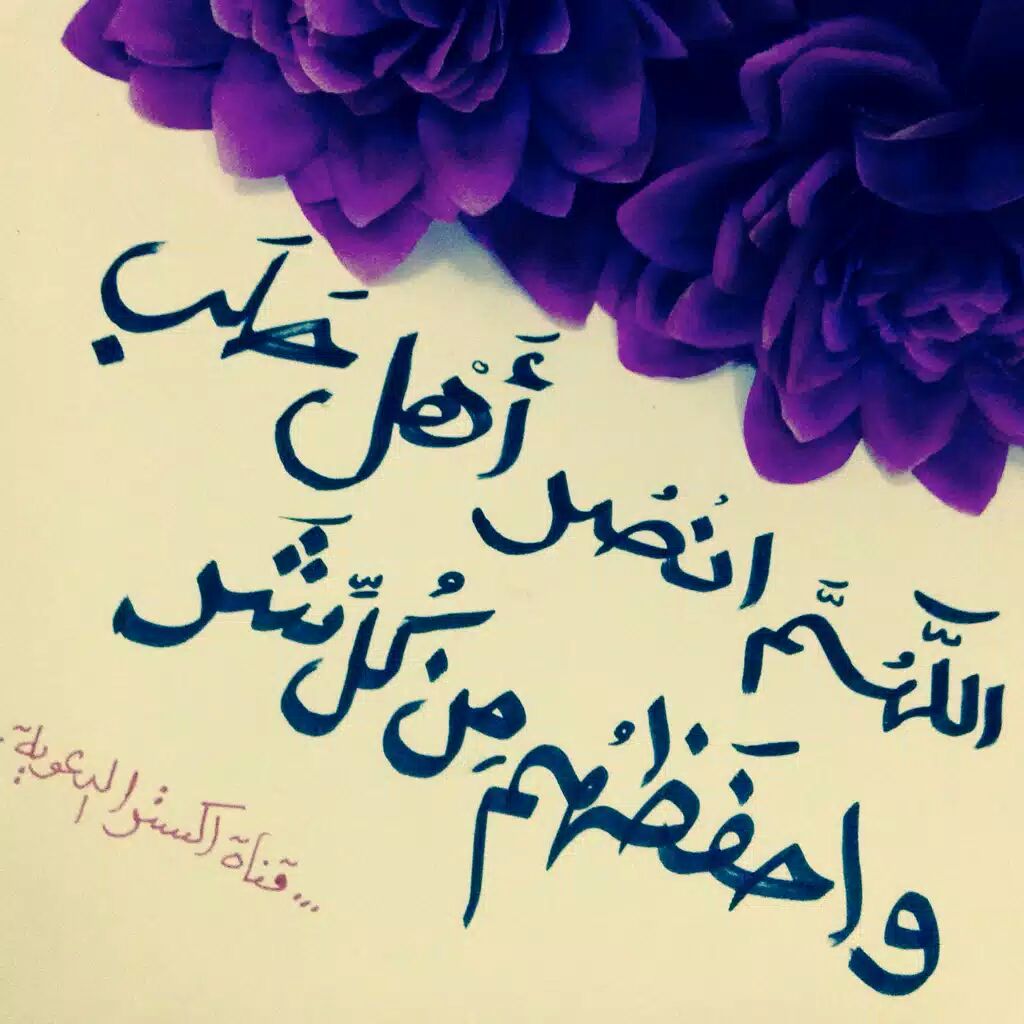 اللَّهُمَّ انُصُر أَهْل حَلَب
واحفَظُهُم مِن كُلِّ شَر
...قناة اكستوا الدعوية